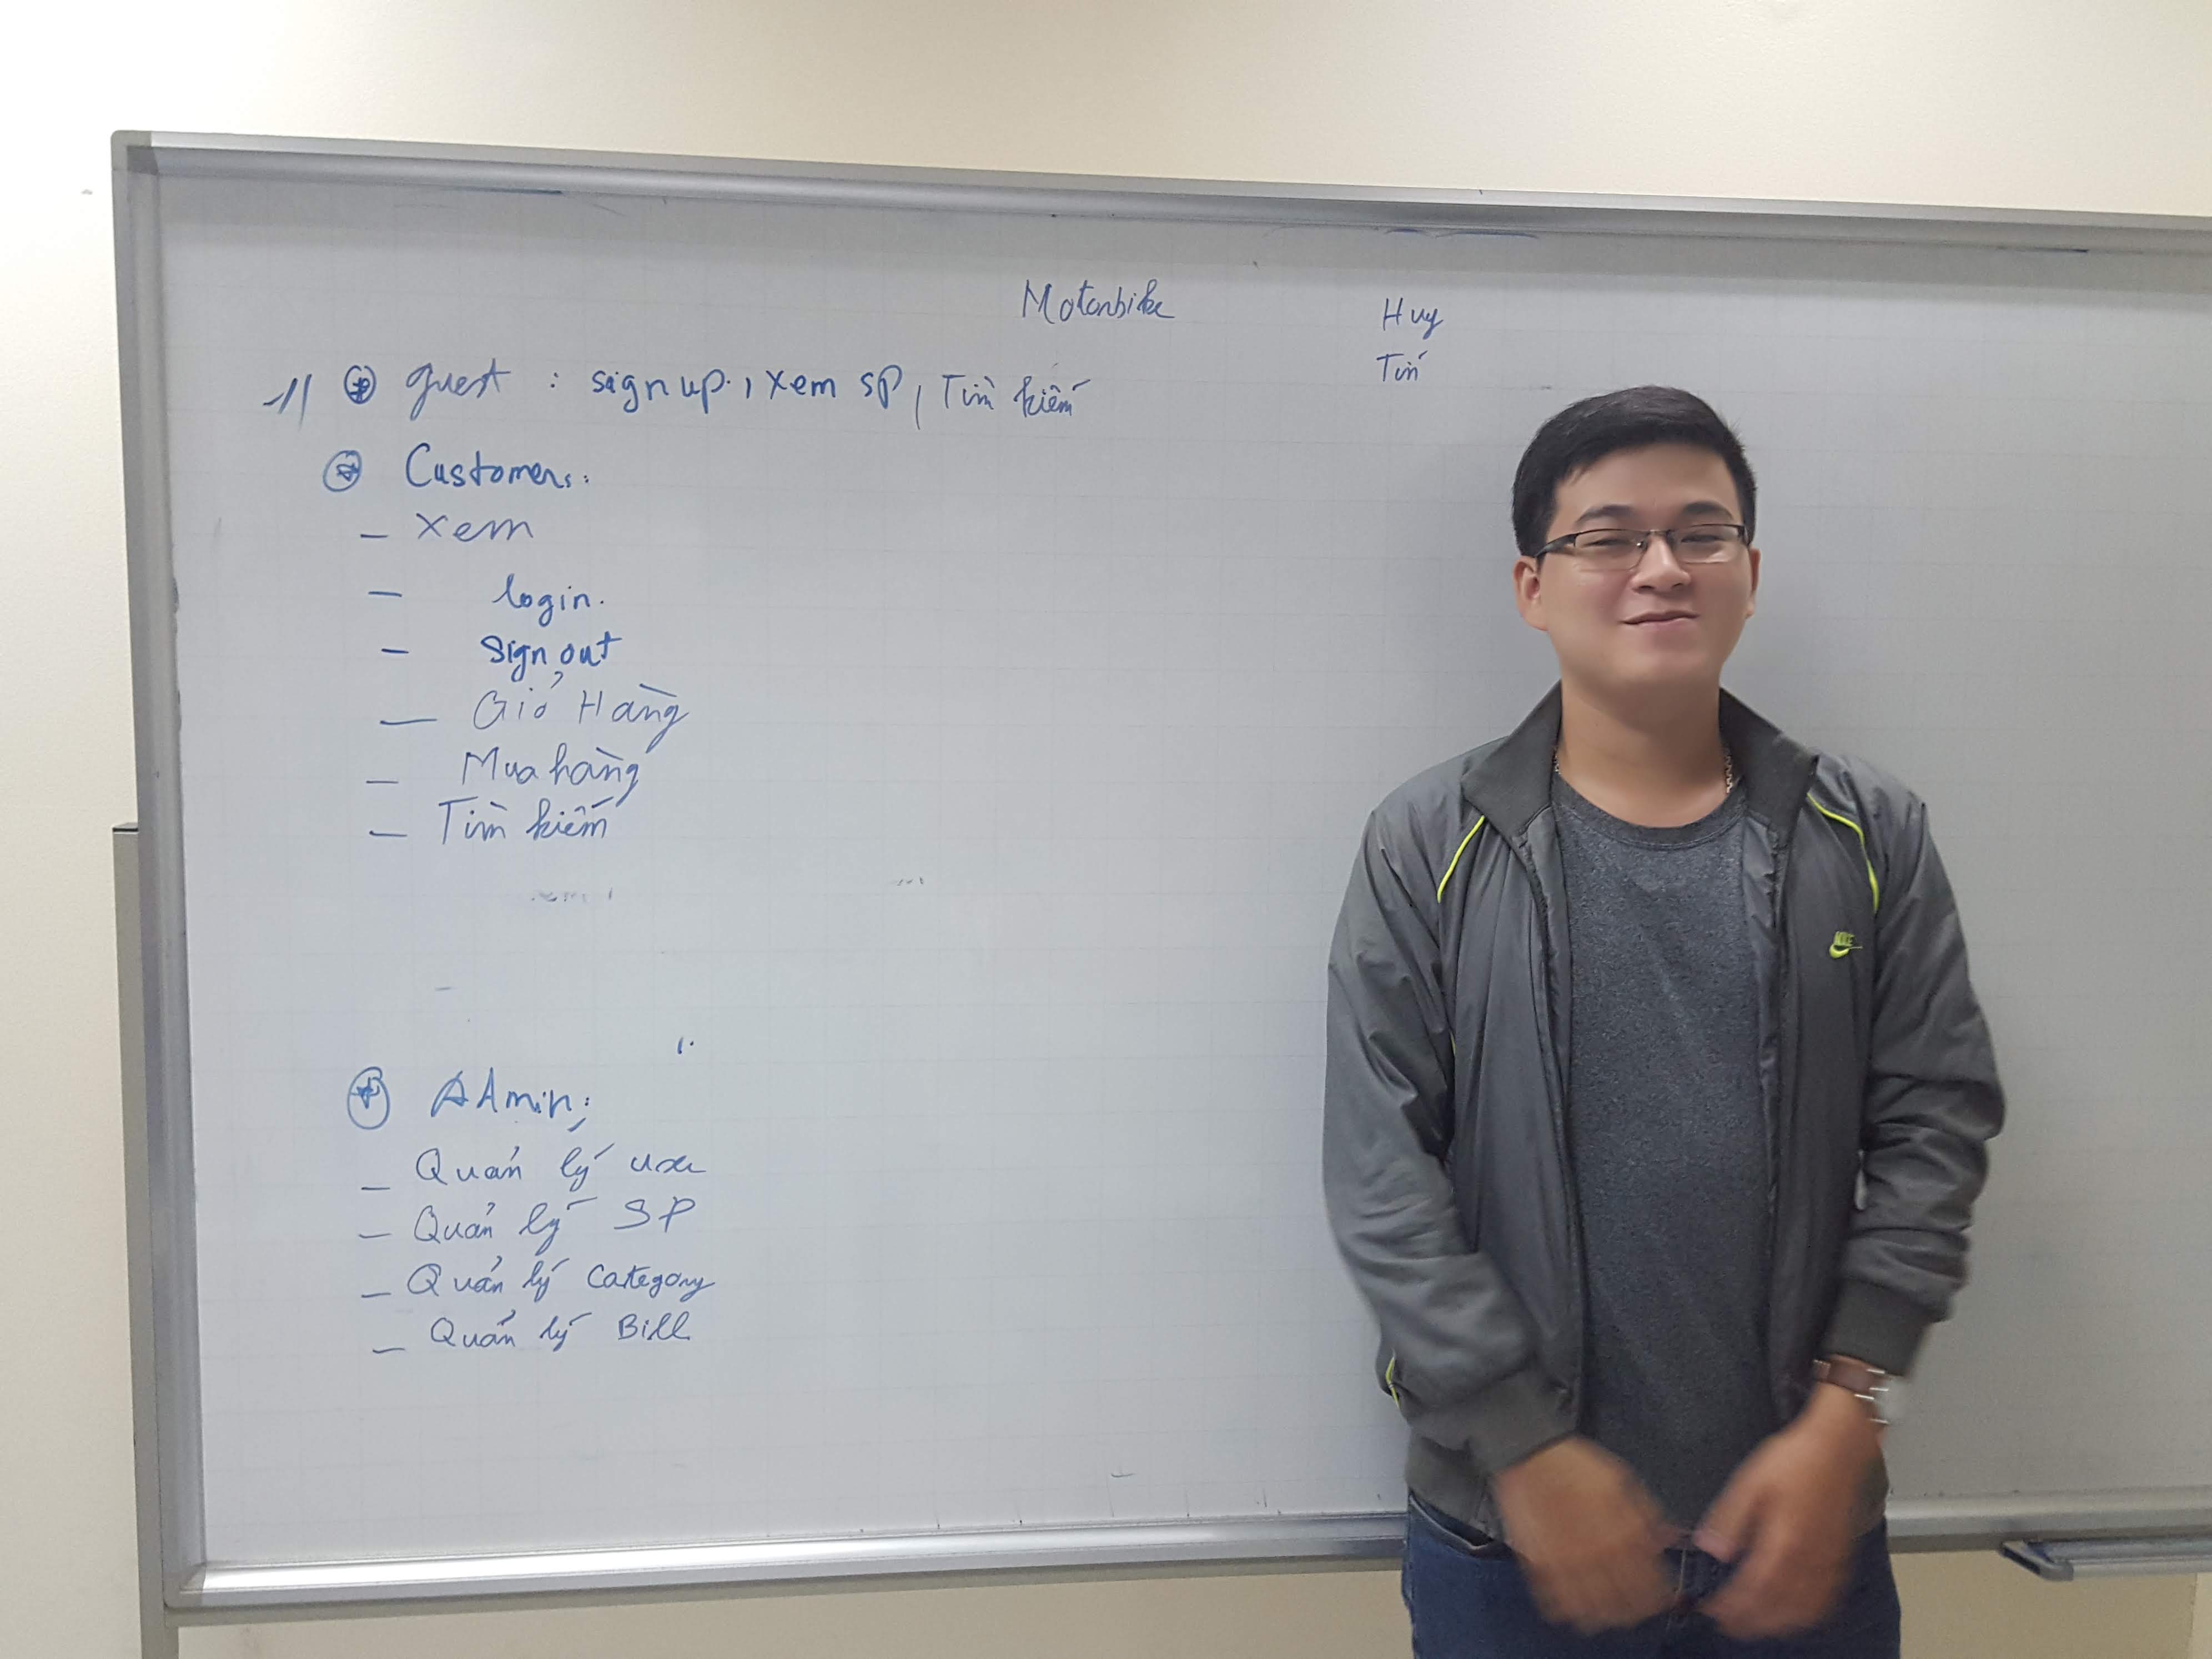 Motorbike
Huy
Tín
1/ guest : sign up, xem SP, Tìm kiếm
Customers:
- Xem
- login.
- Sign out
- Giỏ Hàng
- Mua hàng
- Tìm kiếm
Admin:
- Quản lý user
- Quản lý SP
- Quản lý Category
- Quản lý Bill
NIKE